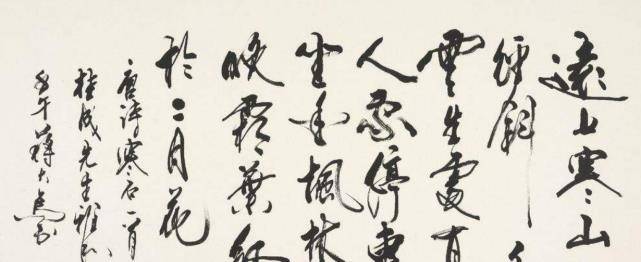 遠上寒山
徑斜
雲生處有
人家停車
坐愛楓林
晚霜葉紅
於二月花
唐詩寒石一首
桂成先生雅正
午蔣大為書